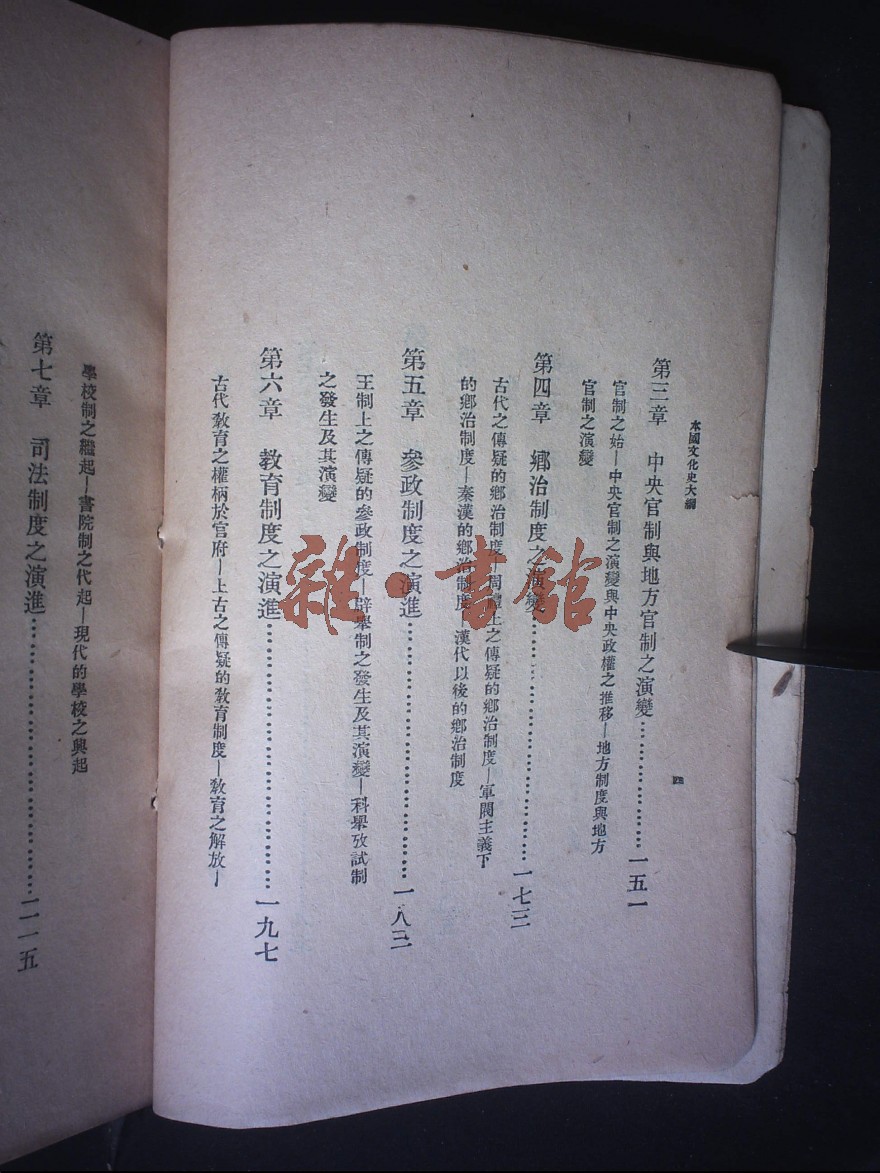 本國文化史大綱
四
第三章　中央官制與地方官制之演變…………………一五一
官制之始—中央官制之演變與中央政權之推移—地方制度與地方
官制之演變
第四章　鄉治制度之演變…………………一七三
古代之傳疑的鄉治制度—周禮上之傳疑的鄉治制度—軍閥主義下
的鄉治制度—秦漢的鄉治制度—漢代以後的鄉治制度
第五章　參政制度之演進…………………一八三
王制上之傳疑的參政制度—辟舉制之發生及其演變—科舉攷試制
之發生及其演變
第六章　教育制度之演進…………………一九七
古代教育之權柄於官府—上古之傳疑的教育制度—教育之解放—
學校制之繼起—書院制之代起—現代的學校之興起
第七章　司法制度之演進…………………二一五
雜·書館